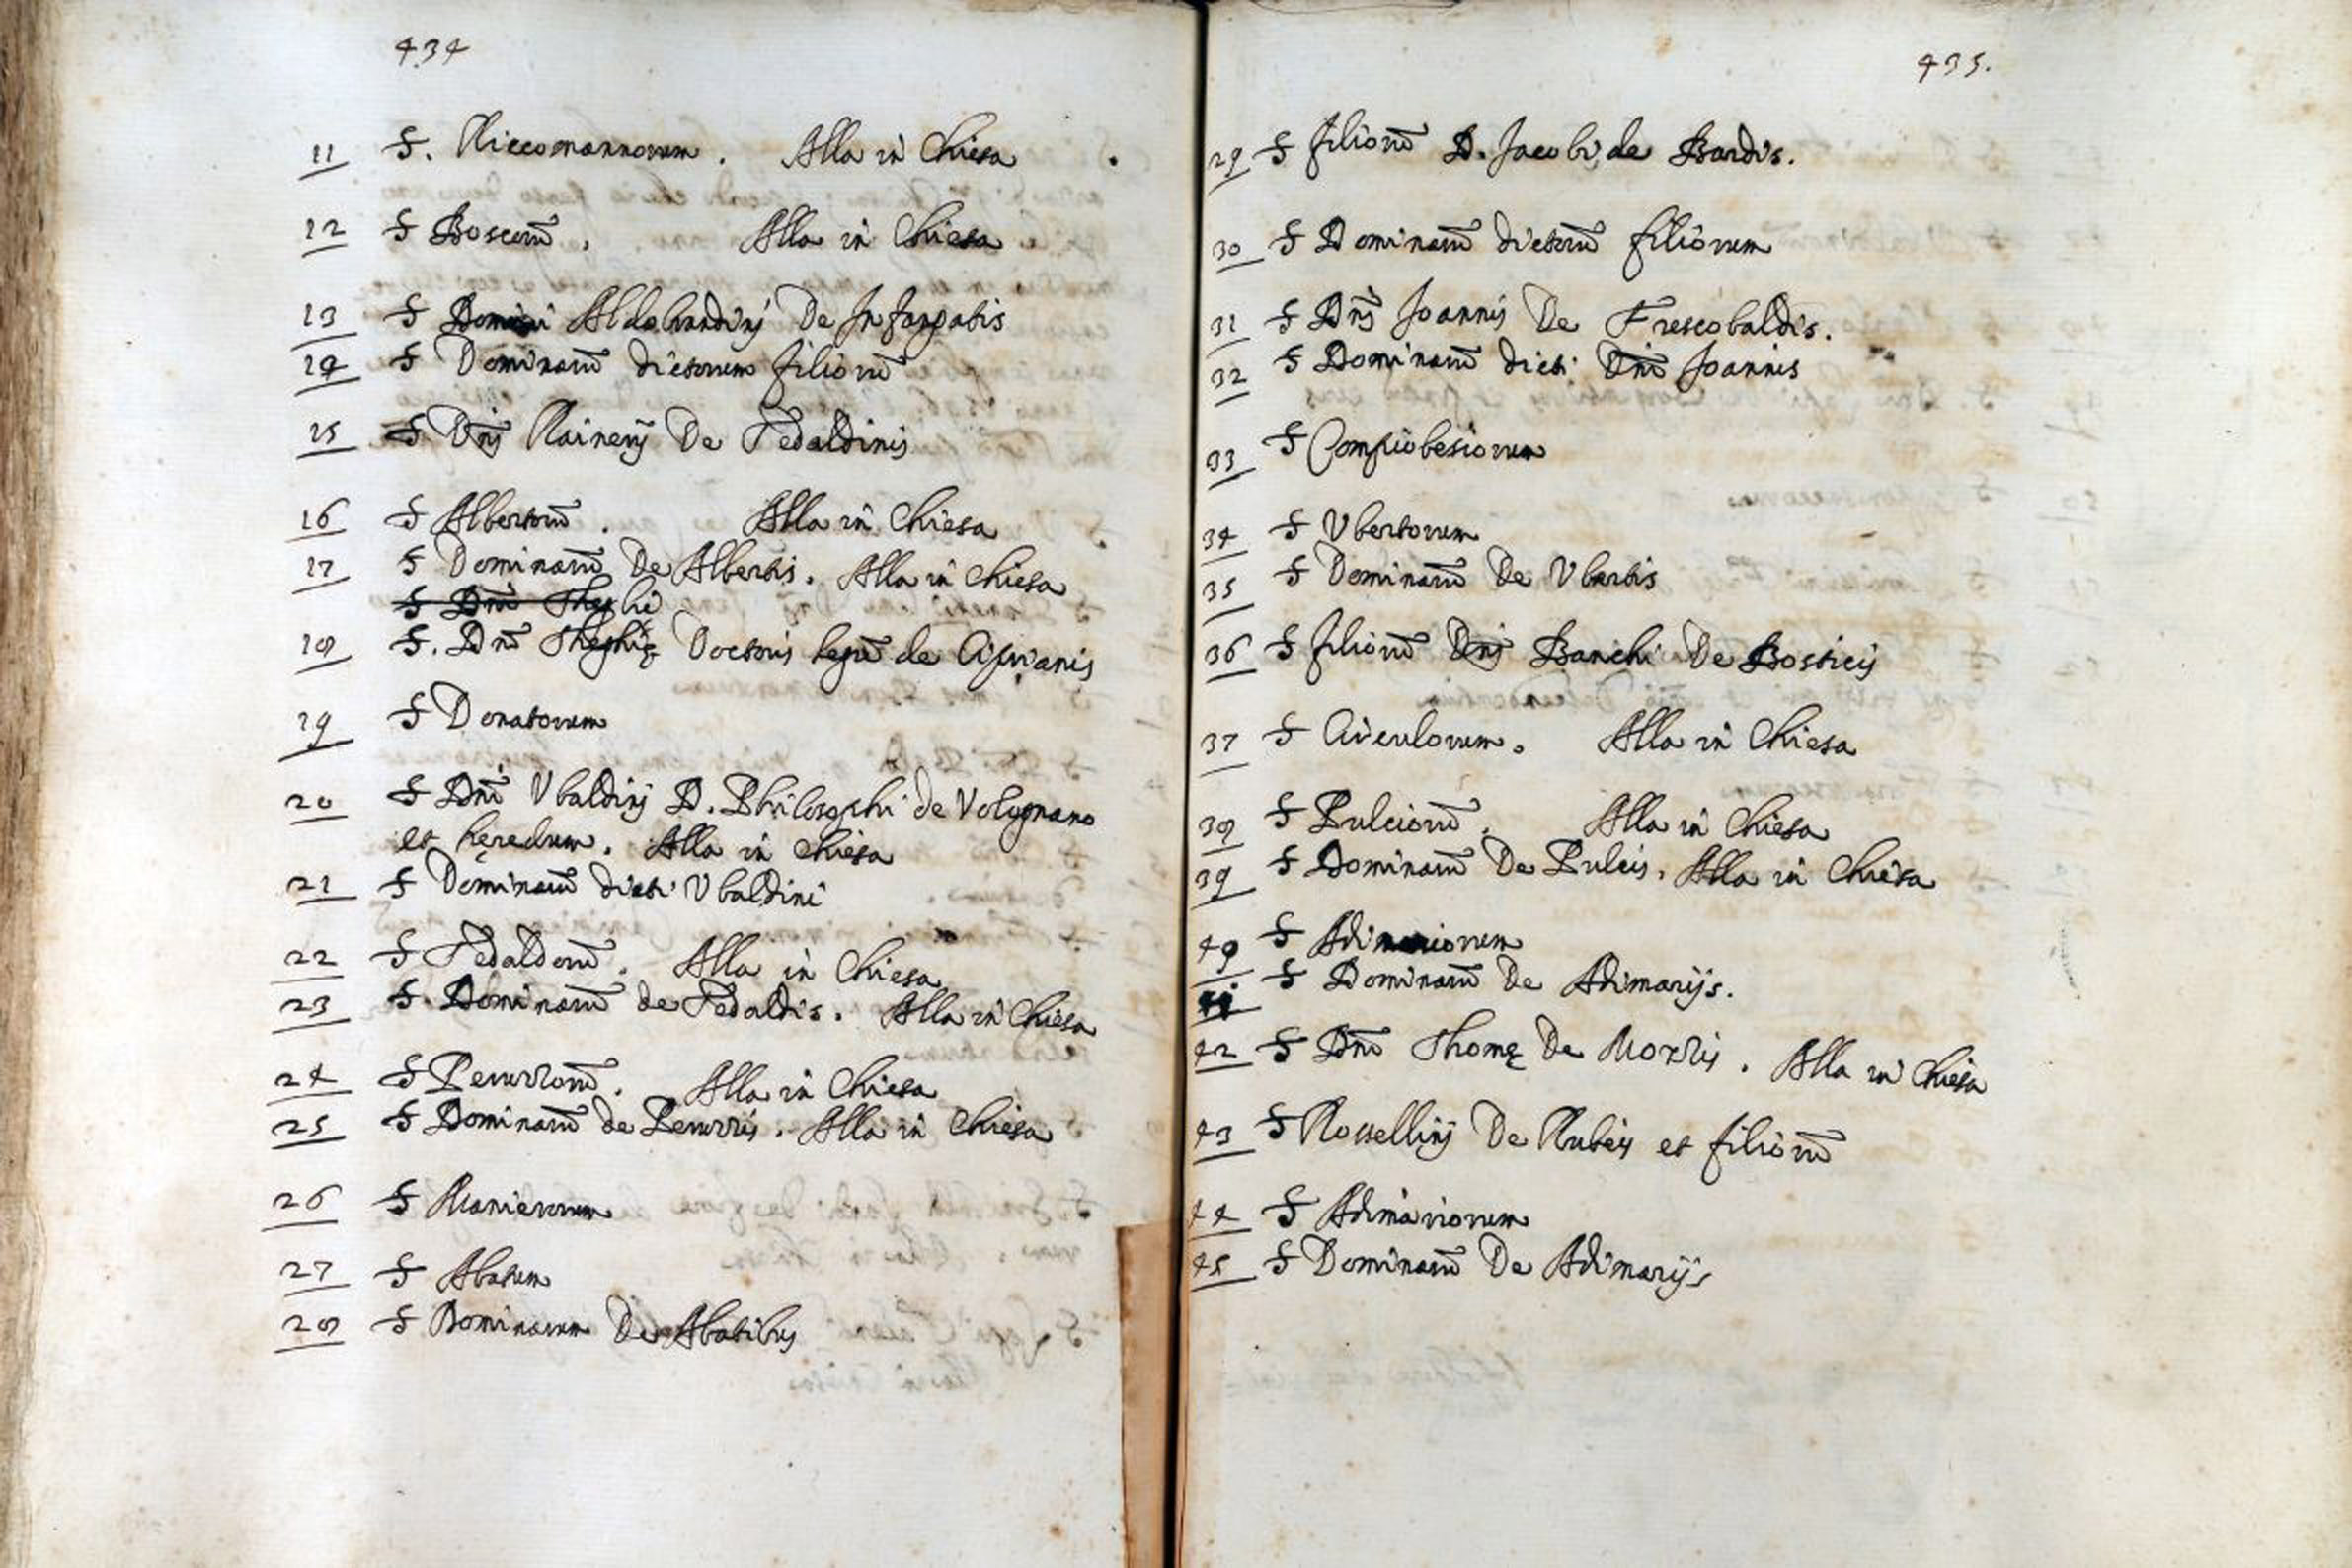 434
11 S. Riccomannorum. Alla in Chiesa
12 S Boscorū. Alla in Chiesa
13 S Domini Aldobrandinj De Infangatis
14 S Dominarū dictorum filiorū
15 S Dnj Rainerij De Tedaldinis
16 S Albertorū. Alla in Chiesa
17 S Dominarū De Albertis. Alla in Chiesa
S Dnī Theghi
18 S. Dnī Theghię Doctoris legū de
19 S Donatorum
20 S Dnī Vbaldinj D. Philosophi de Volognano
et heredum. Alla in Chiesa
21 S Dominarū dicti Vbaldini
22 S Tedaldorū. Alla in Chiesa
23 S. Dominarū de Tedaldis. Alla in Chiesa
24 S Peruzzorū. Alla in Chiesa
25 S Dominarū de Peruzzis. Alla in Chiesa
26 S
27 S Abatum
28 S Dominarum De Abatibus
435.
29 S filiorū D. Jacobi de Bardis.
30 S Dominarū dictorū filiorum
31 S Dnj Joannis De Frescobaldis.
32 S Dominarū dicti Dnī Joannis
33 S Compiobesiorum
34 S Vbertorum
35 S Dominarū De Vbertis
36 S filiorū Dnj Banchi De Bosticis
37 S Alla in Chiesa
38 S Pulciorū. Alla in Chiesa
39 S Dominarū De Pulcis. Alla in Chiesa
40 S Adimariorum
41 S Dominarū De Adimarijs.
42 S Dnī Thomę De Mozzis. Alla in Chiesa
43 S Rossellinj De Rubeis et filiorū
44 S Adimariorum
45 S Dominarū De Adimarijs